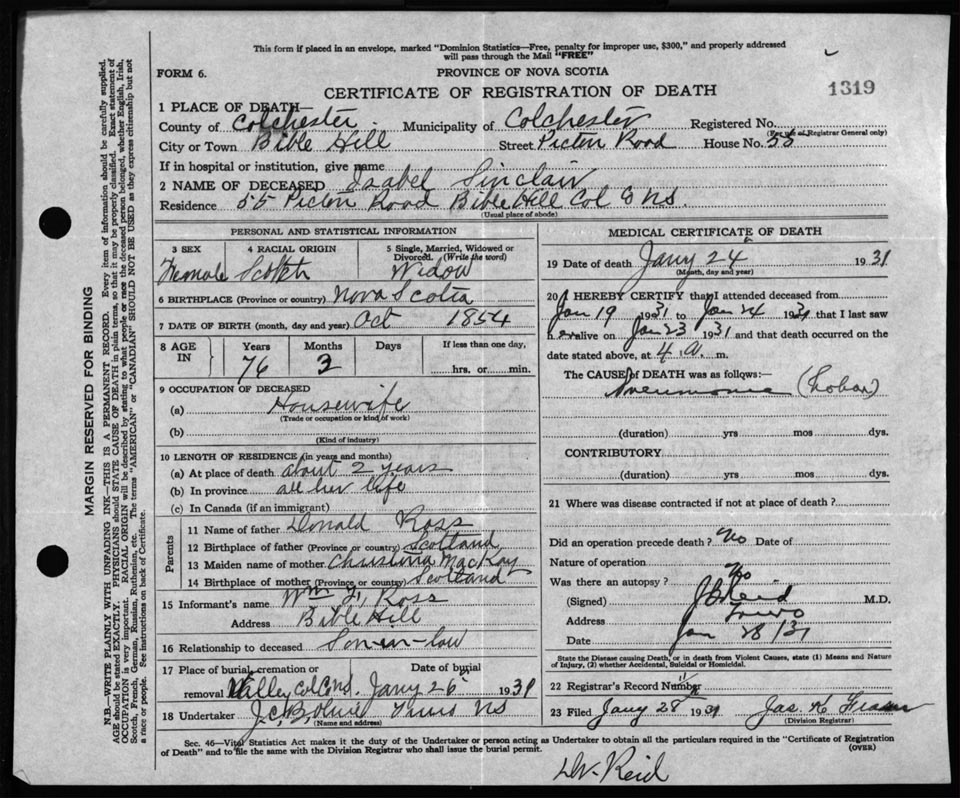 This form if placed in an envelope, marked "Dominion Statistics—Free, penalty for improper use, $300," and properly addressed
will pass through the Mail "FREE"
FORM 6.
PROVINCE OF NOVA SCOTIA
CERTIFICATE OF REGISTRATION OF DEATH
1319
1 PLACE OF DEATH—
County of Colchester Municipality of Colchester Registered No.
(For use of Registrar General only)
City or Town Bible Hill Street Picton Road House No. 55
If in hospital or institution, give name
2 NAME OF DECEASED Isabel Sinclair
Residence 55 Picton Road Bible Hill Col Co NS.
(Usual place of abode)
PERSONAL AND STATISTICAL INFORMATION
3 SEX 4 RACIAL ORIGIN 5 Single, Married, Widowed or
Divorced. (Write the word)
Female Scotch Widow
6 BIRTHPLACE (Province or country) Nova Scotia
7 DATE OF BIRTH (month, day and year) Oct 1854
8 AGE IN Years Months Days If less than one day,
76 3 hrs. or min.
9 OCCUPATION OF DECEASED
(a) Housewife
(Trade or occupation or kind of work)
(b)
(Kind of industry)
10 LENGTH OF RESIDENCE (in years and months)
(a) At place of death about 2 years
(b) In province all her life
(c) In Canada (if an immigrant)
Parents
11 Name of father Donald Ross
12 Birthplace of father (Province or country) Scotland
13 Maiden name of mother Christina MacKay
14 Birthplace of mother (Province or country) Scotland
15 Informant's name Wm Y. Ross
Address Bible Hill
16 Relationship to deceased Son-in-law
17 Place of burial, cremation or Date of burial
removal Valley Col Co NS. Jany 26 1931
18 Undertaker J.C.B. Truro NS
(Name and address)
MEDICAL CERTIFICATE OF DEATH
19 Date of death Jany 24 1931
(Month, day and year)
20 I HEREBY CERTIFY that I attended deceased from
Jan 19 1931 to Jan 24 1931 that I last saw
h er alive on Jan 23 1931 and that death occurred on the
date stated above, at 4 a. m.
The CAUSE of DEATH was as follows:—
Pneumonia (Lobar)
(duration) yrs mos dys.
CONTRIBUTORY
(duration) yrs mos dys.
21 Where was disease contracted if not at place of death?
Did an operation precede death? No Date of
Nature of operation
Was there an autopsy? No
(Signed) Reid M.D.
Address Truro
Date Jan 28/31
State the Disease causing Death, or in death from Violent Causes, state (1) Means and Nature
of Injury, (2) whether Accidental, Suicidal or Homicidal.
22 Registrar's Record Number 11
23 Filed Jany 28 1931 Jas. K Fraser
(Division Registrar)
Sec. 46—Vital Statistics Act makes it the duty of the Undertaker or person acting as Undertaker to obtain all the particulars required in the "Certificate of Registration
of Death" and to file the same with the Division Registrar who shall issue the burial permit. (OVER)
Dr. Reid
MARGIN RESERVED FOR BINDING
N.B.—WRITE PLAINLY WITH UNFADING INK—THIS IS A PERMANENT RECORD. Every item of information should be carefully supplied.
AGE should be stated EXACTLY. PHYSICIANS should STATE CAUSE OF DEATH in plain terms, so that it may be properly classified. Exact statement of
OCCUPATION is very important. RACIAL ORIGIN will be described by stating to what people or race the deceased person belonged, whether English, Irish,
Scotch, French, German, Russian, Ruthenian, etc. The terms "AMERICAN" or "CANADIAN" SHOULD NOT BE USED as they express citizenship but not
a race or people. See instructions on back of Certificate.